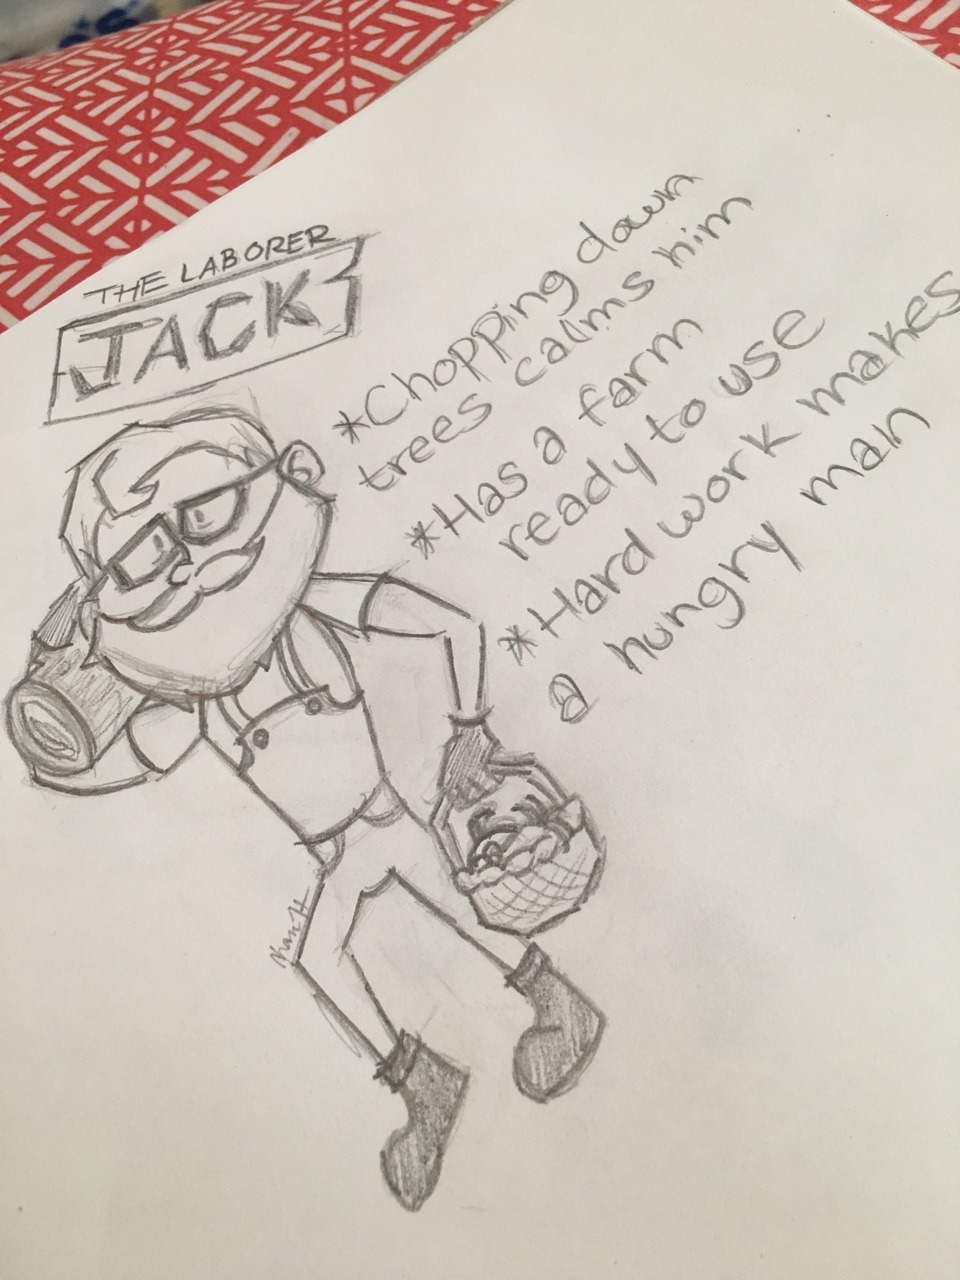 THE LABORER
JACK
*Chopping down
trees calms him
*Has a farm
ready to use
*Hard work makes
a hungry man